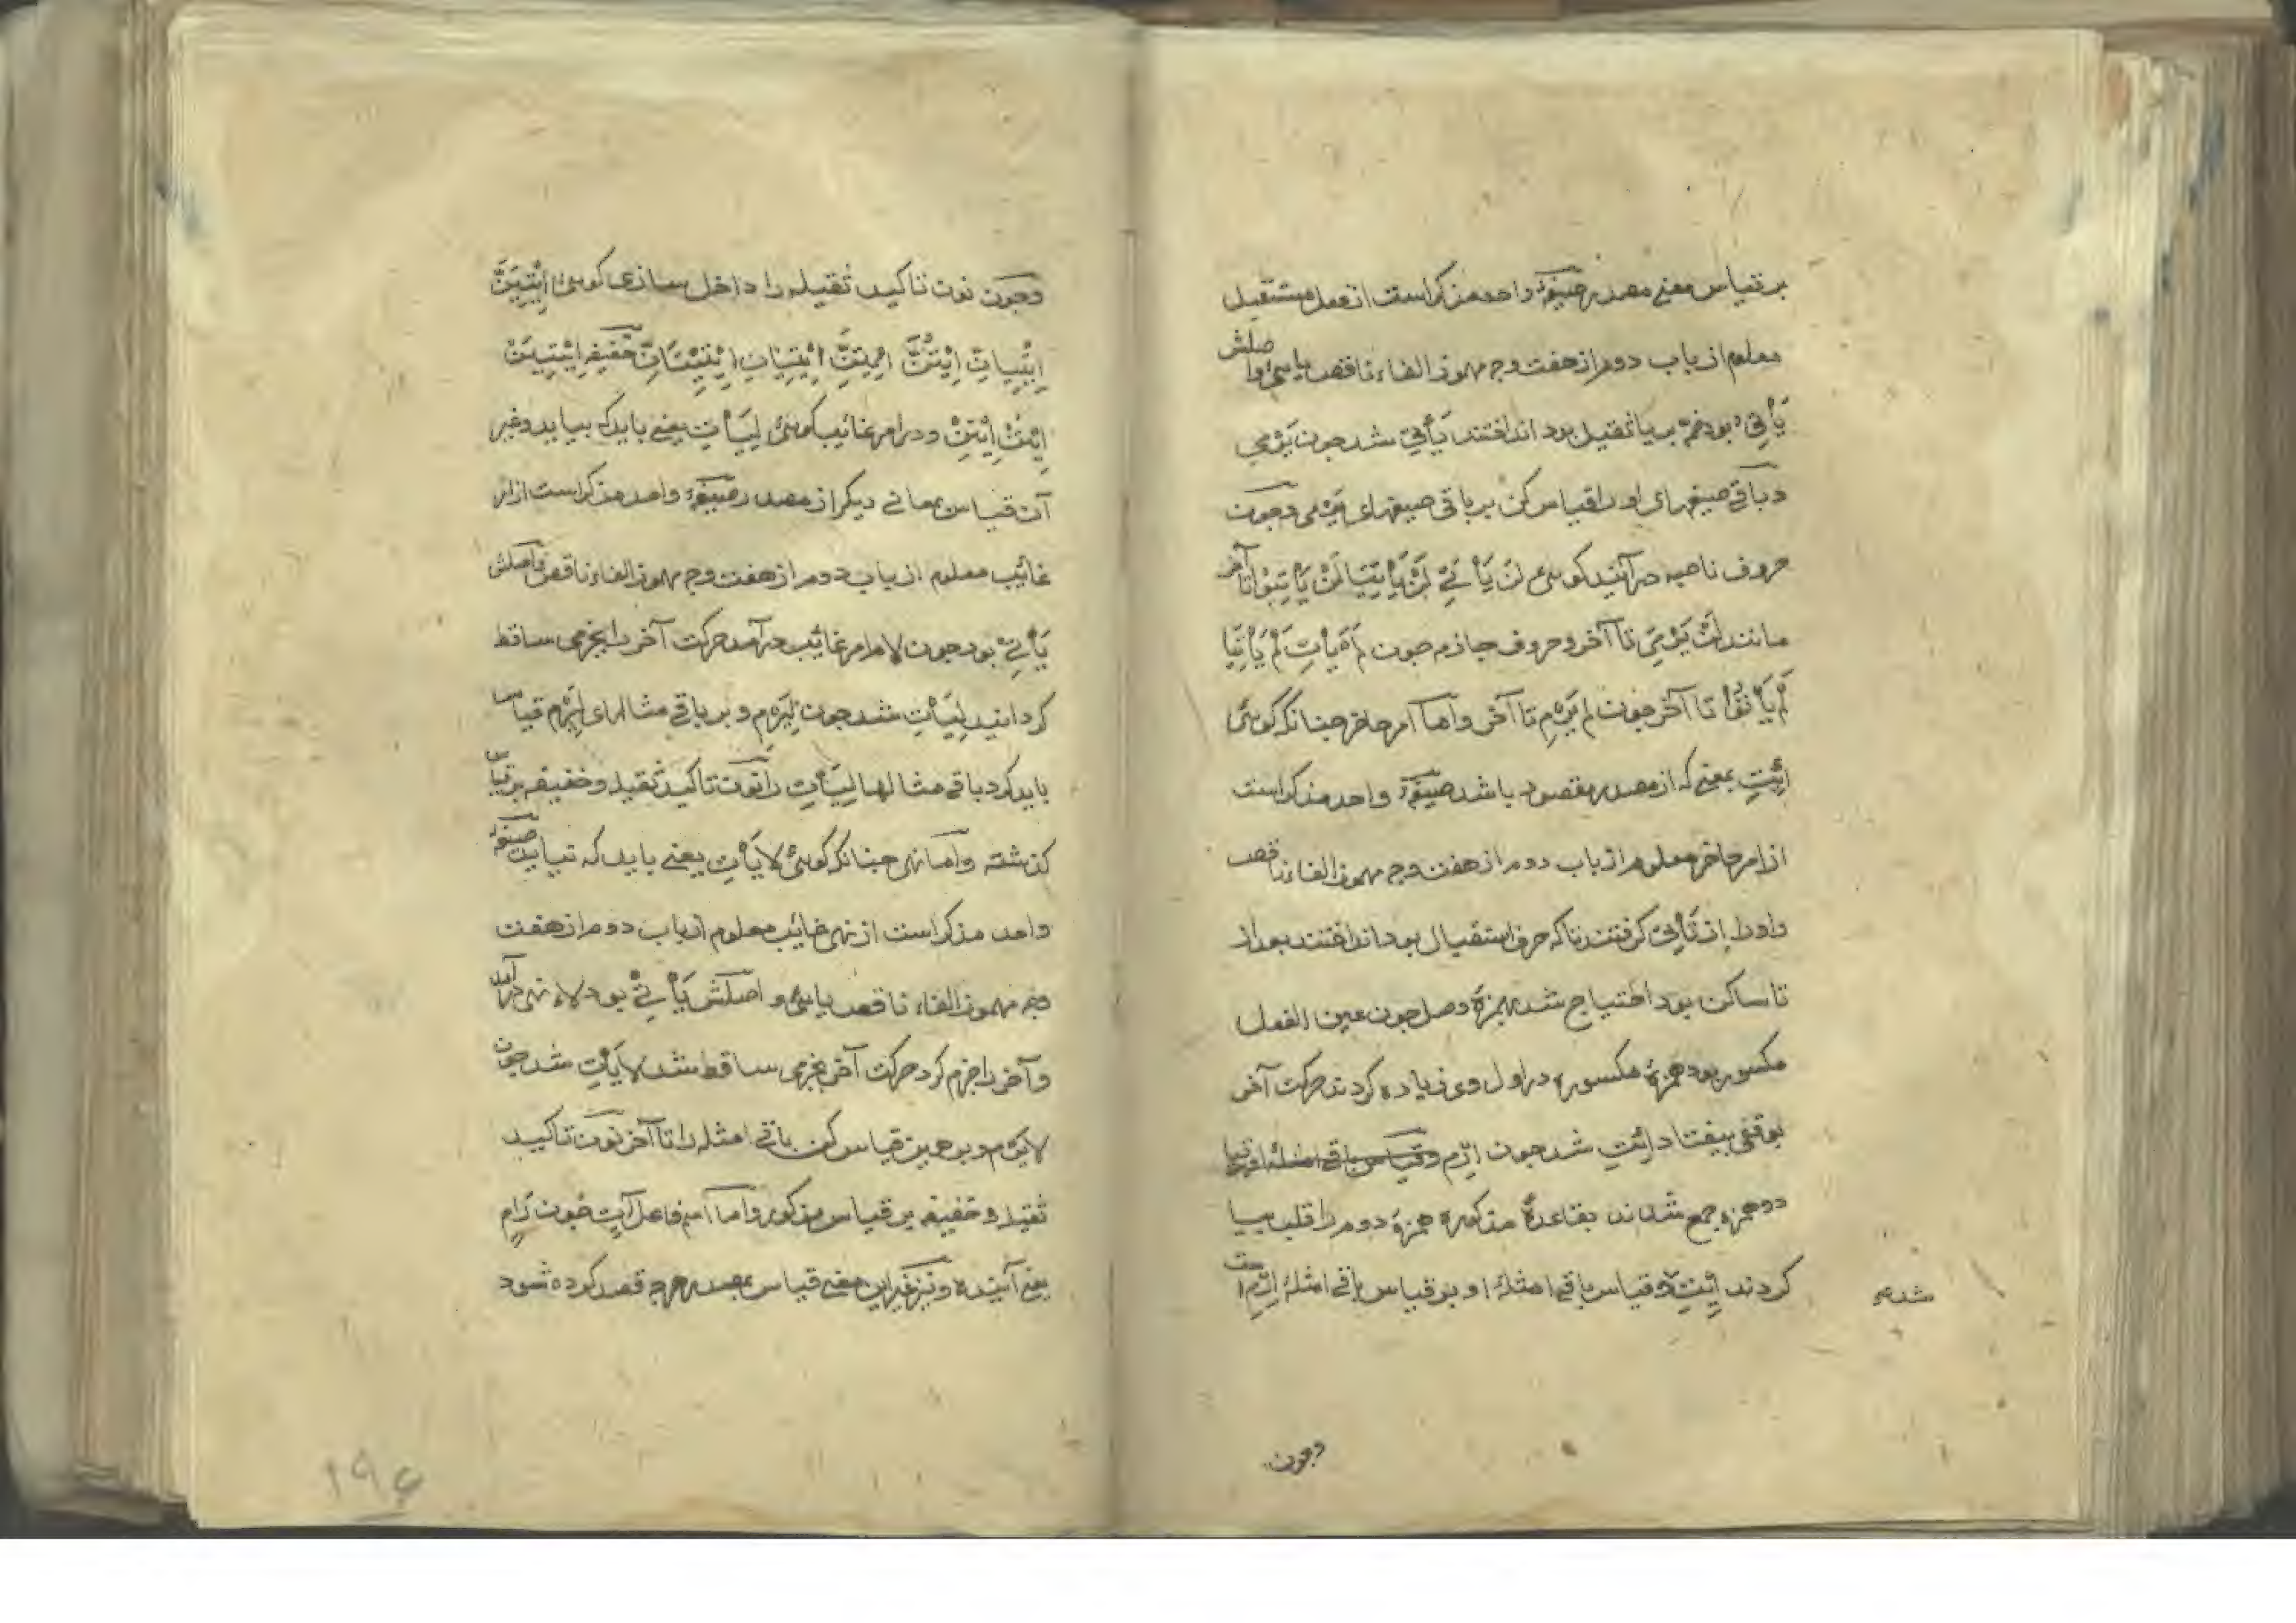 بر قیاس معنی مصدر صیغهٔ واحد مذکر است از فعل مستقبل
معلوم از باب دوم از هفت وجه مهموز الفاء ناقص یایی و اصلش
یَأْتِیُ بود ضمه بر یا ثقیل بود انداختند یَأْتِی شد چون یَرْمِی
و باقی صیغهای او را قیاس کن بر باقی صیغهای یَرْمِی و چون
حروف ناصبه در آیند کوئی لن یَأْتِیَ لَنْ یَأْتِیَا لَنْ یَأْتُوْا تا آخر
مانند لَنْ یَرْمِیَ تا آخر و حروف جازمه چون لَمْ یَأْتِ لَمْ یَأْتِیَا
لَمْ یَأْتُوْا تا آخر چون لم یَرْمِ تا آخر و اما امر حاضر چنانکه کوئی
اِئْتِ بمعنی که از مصدر مقصود باشد صیغهٔ واحد مذکر است
از امر حاضر معلوم از باب دوم از هفت وجه مهموز الفاء ناقص
و او را از تَأْتِی کرفتند تا که حرف استقبال بود انداختند بعد از
تا ساکن بود احتیاج شد بهمزهٔ وصل چون عین الفعل
مکسور بود همزهٔ مکسوره در اول وی زیاده کردند حرکت آخر
بوقفی بیفتاد اِئْتِ شد چون اِرْمِ و قیاس باقی امثلهٔ او
دو همزه جمع شدند بقاعدهٔ مذکوره همزهٔ دوم را قلب بیا
کردند اِیْتِ و قیاس باقی امثلهٔ او بر قیاس باقی امثلهٔ اِرْمِ است
شد صح
و چون
و چون نون تاکید ثقیله را داخل سازی کوئی اِیْتِیَنَّ
اِیْتِیَانِّ اِیْتُنَّ اِیْتِنَّ اِیْتِیَانِّ اِیْتِیْنَانِّ خفیفه اِیْتِیَنْ
اِیْتُنْ اِیْتِنْ و در امر غائب کوئی لِیَأْتِ یعنی باید که بیاید و غیر
آن قیاس بمعانی دیکر از مصدر صیغهٔ واحد مذکر است از امر
غائب معلوم از باب دوم از هفت وجه مهموز الفاء ناقص اصلش
یَأْتِیْ بود چون لام امر غائب در آمد حرکت آخر را بجزمی ساقط
کردانید لِیَأْتِ شد چون لِیَرْمِ و بر باقی مثالهای لِیَرْمِ قیاس
باید کرد باقی مثالها لِیَأْتِ را نون تاکید ثقیله و خفیفه بر قیاس
کذشته و اما نهی چنانکه کوئی لا یَأْتِ یعنی باید که نیاید صیغهٔ
واحد مذکر است از نهی غائب معلوم از باب دوم از هفت
وجه مهموز الفاء ناقص یایی و اصلش یَأْتِیْ بود لاء نهی در آمد
و آخر را جزم کرد حرکت آخر بجزمی ساقط شد لا یَأْتِ شد چون
لا یَرْمِ و بر همین قیاس کن باقی امثله را تا آخر نون تاکید
ثقیله و خفیفه بر قیاس مذکور و اما اسم فاعل آتٍ چون رَامٍ
یعنی آینده و نیز غیر این معنی قیاس بمصدر هر چه قصد کرده شود
۱۹۶